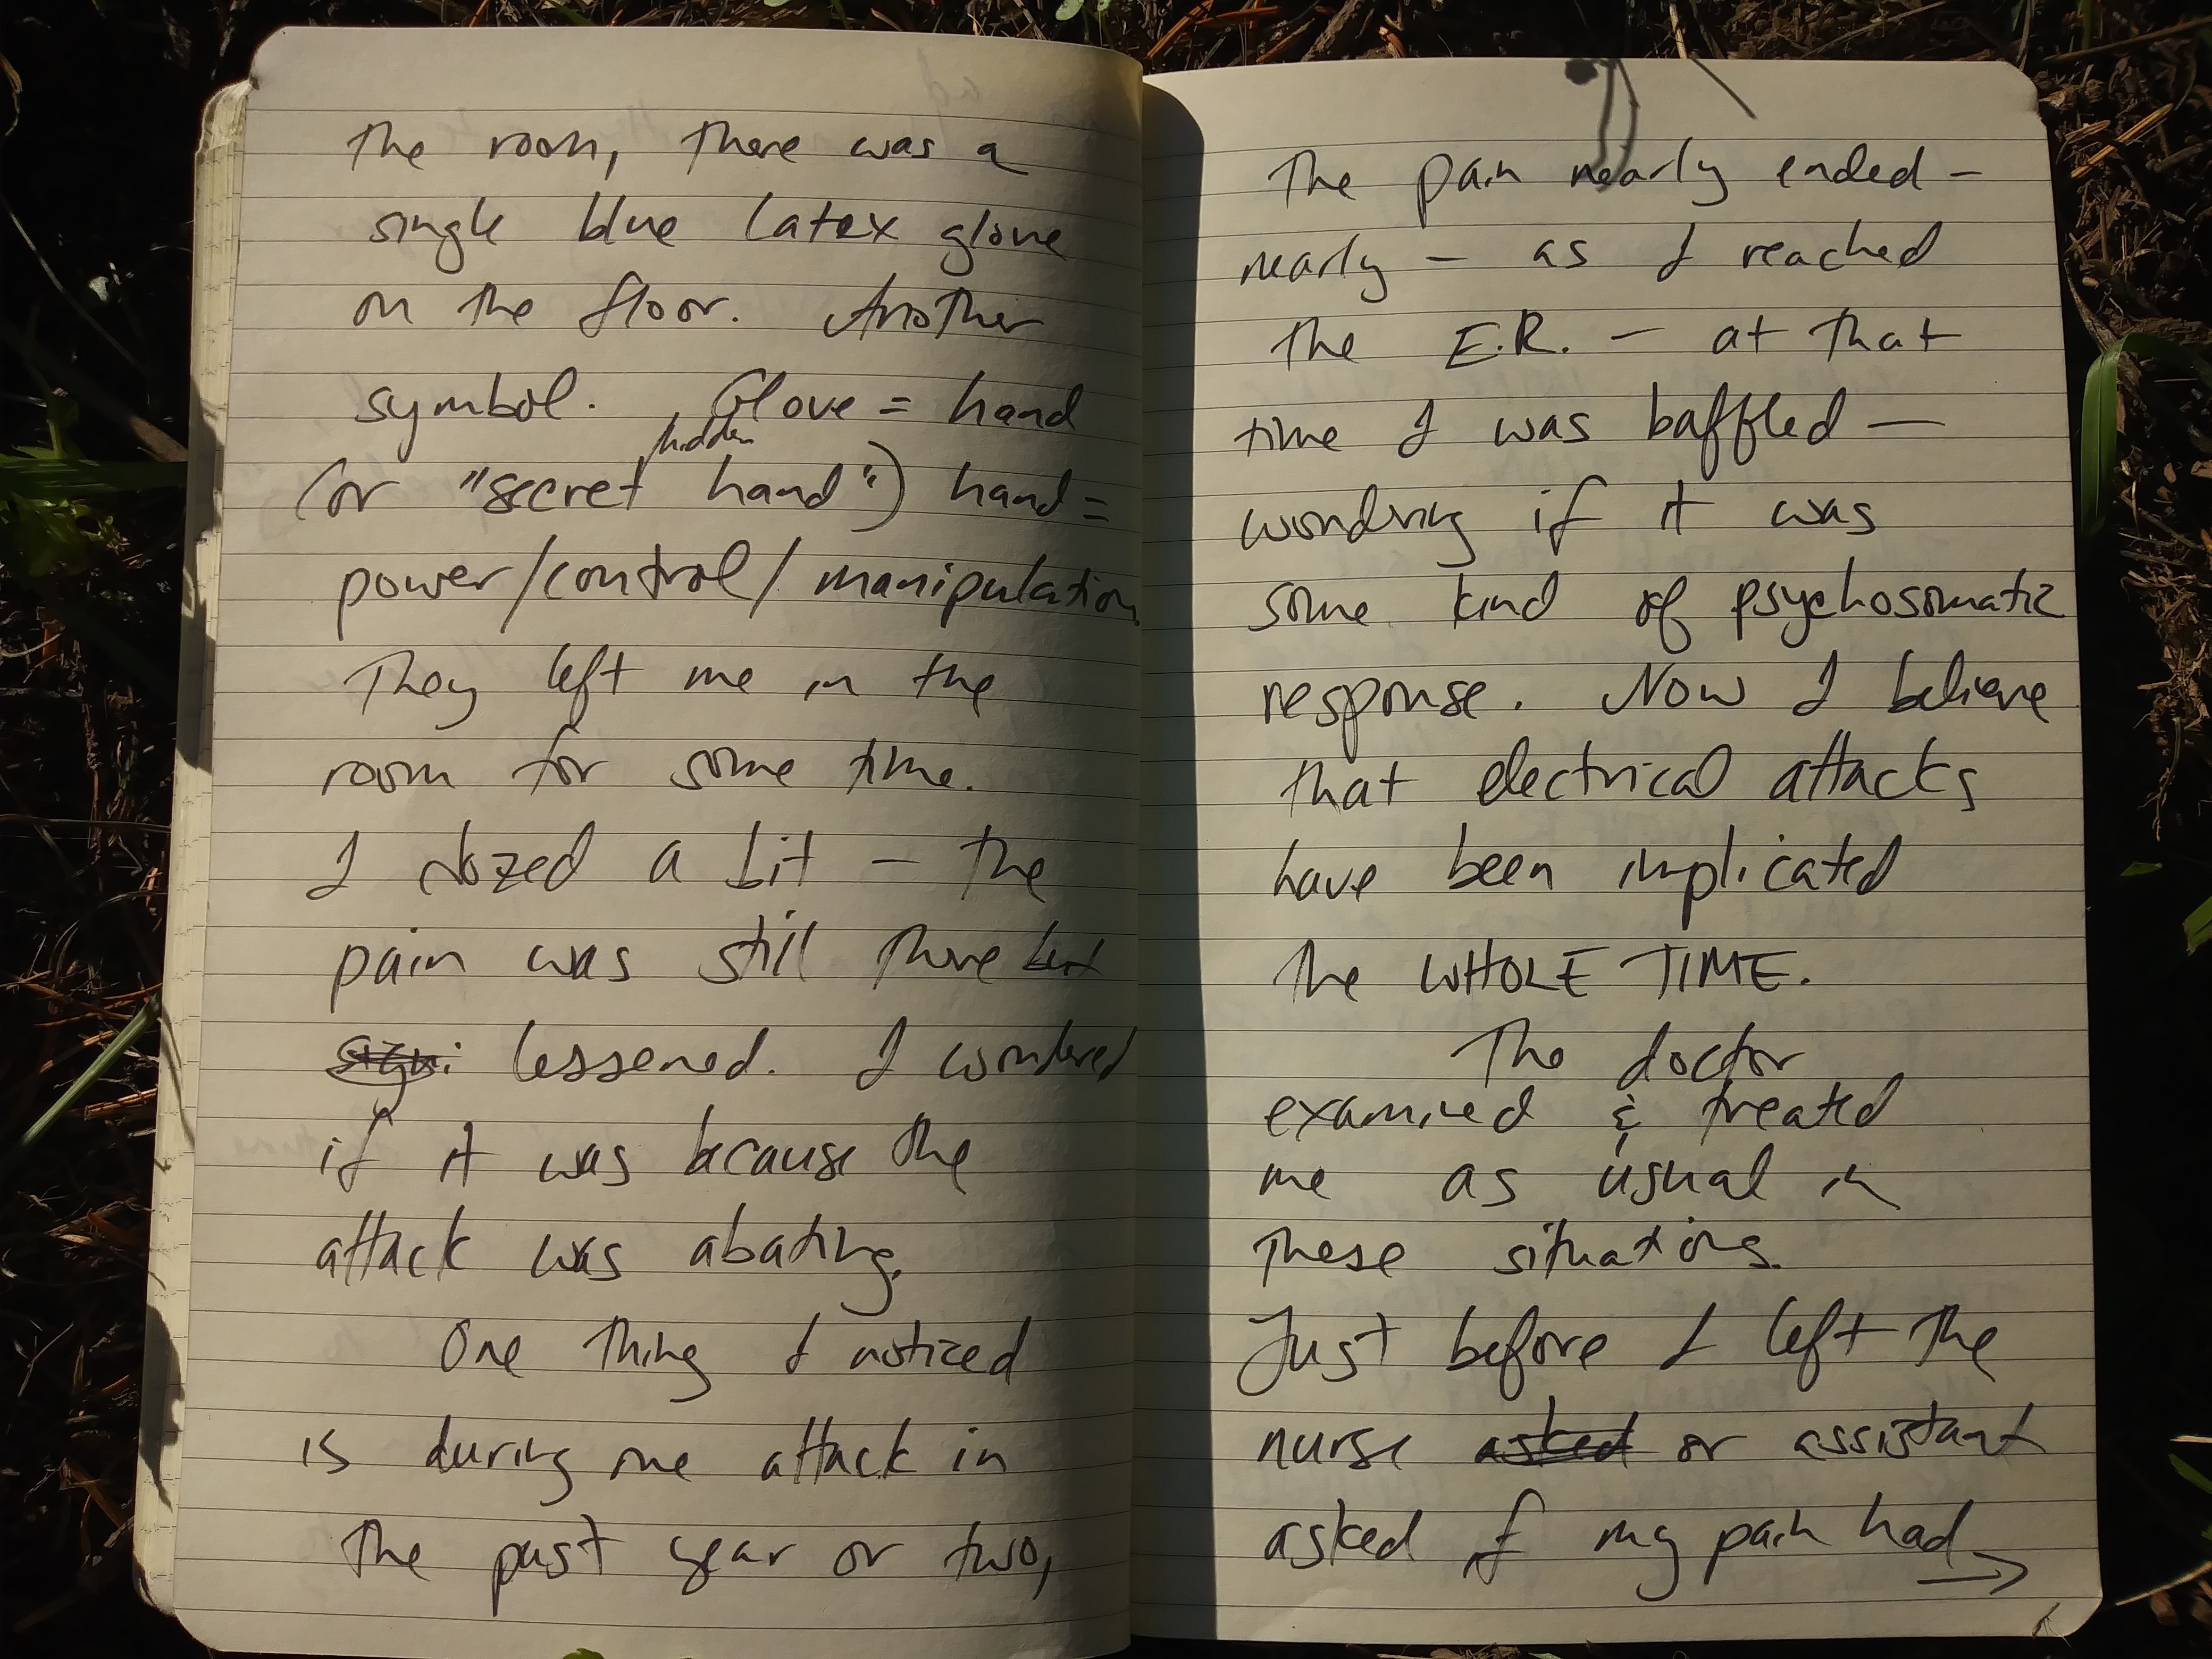 the room, there was a
single blue latex glove
on the floor. Another
symbol. Glove = hand
hidden
(or "secret hand") hand =
power/control/manipulation
They left me in the
room for some time.
I dozed a bit – the
pain was still there but
lessened. I wondered
if it was because the
attack was abating.
One thing I noticed
is during one attack in
the past year or two,
the pain nearly ended –
nearly – as I reached
the E.R. – at that
time I was baffled —
wondering if it was
some kind of psychosomatic
response. Now I believe
that electrical attacks
have been implicated
the WHOLE TIME.
The doctor
examined & treated
me as usual in
these situations.
Just before I left the
nurse asked or assistant
asked if my pain had →